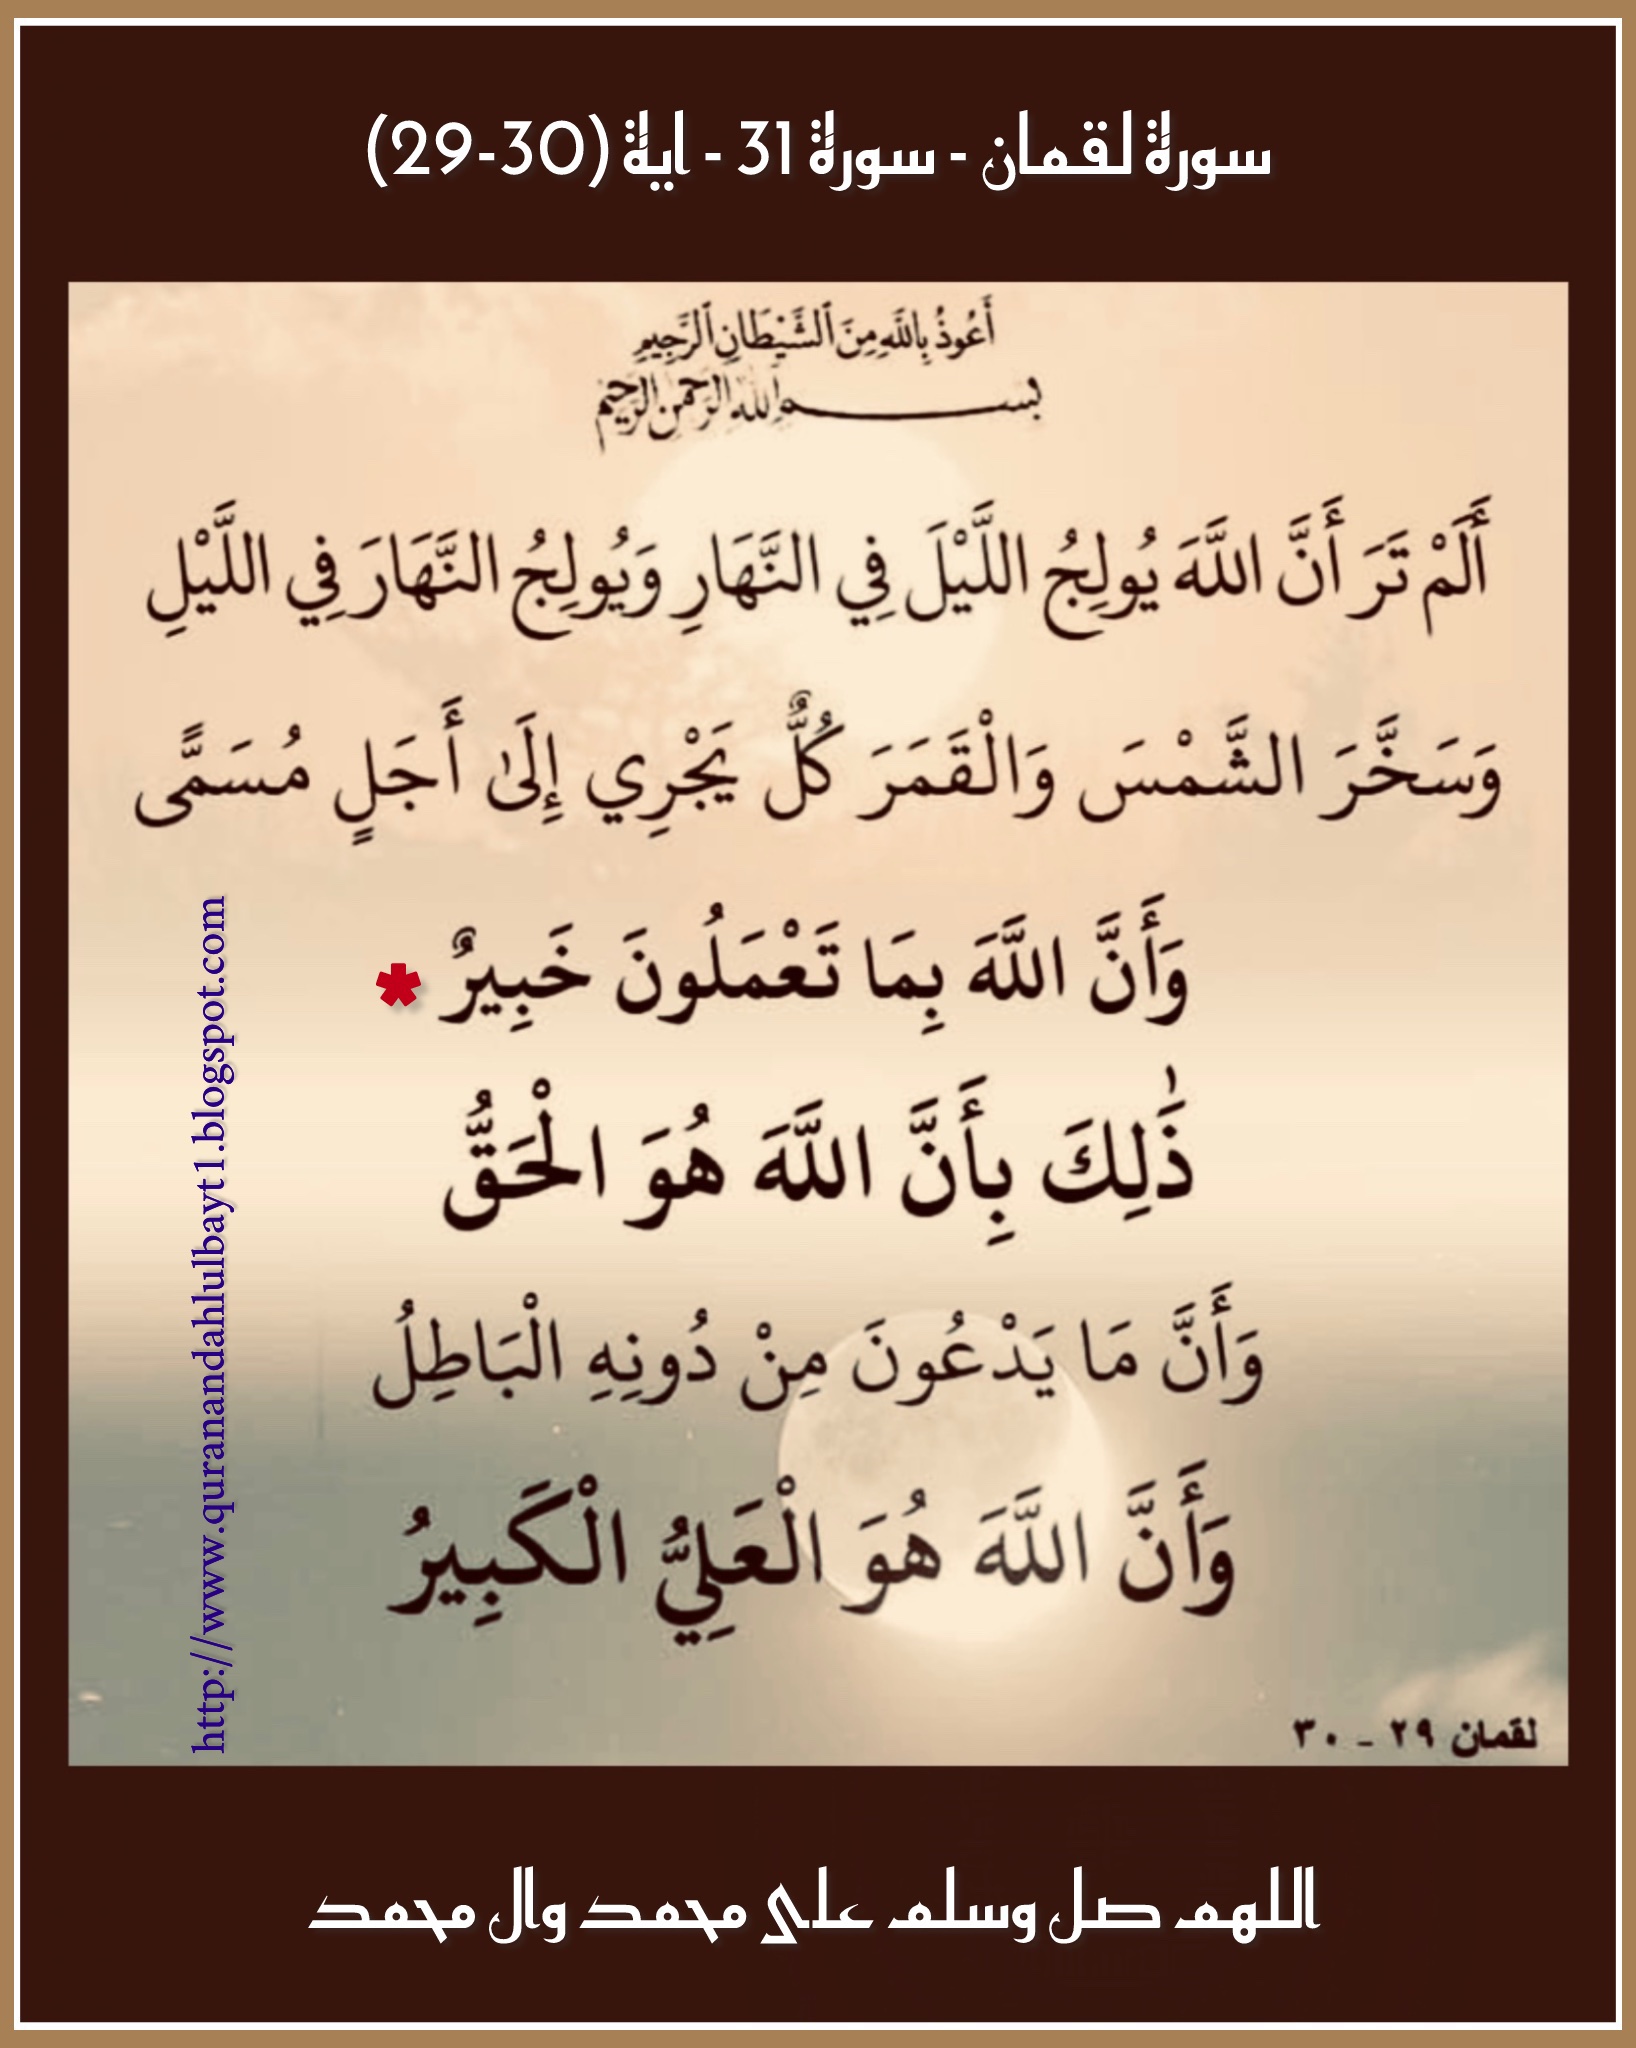 سورة لقمان - سورة 31 - اية (29-30)
أَعُوذُ بِاللَّهِ مِنَ ٱلشَّيْطَانِ ٱلرَّجِيمِ
بسم الله الرحمن الرحيم
أَلَمْ تَرَ أَنَّ اللَّهَ يُولِجُ اللَّيْلَ فِي النَّهَارِ وَيُولِجُ النَّهَارَ فِي اللَّيْلِ
وَسَخَّرَ الشَّمْسَ وَالْقَمَرَ كُلٌّ يَجْرِي إِلَىٰ أَجَلٍ مُسَمًّى
وَأَنَّ اللَّهَ بِمَا تَعْمَلُونَ خَبِيرٌ *
ذَٰلِكَ بِأَنَّ اللَّهَ هُوَ الْحَقُّ
وَأَنَّ مَا يَدْعُونَ مِنْ دُونِهِ الْبَاطِلُ
وَأَنَّ اللَّهَ هُوَ الْعَلِيُّ الْكَبِيرُ
لقمان ٢٩ - ٣٠
http://www.quranandahlulbayt1.blogspot.com
اللهم صل وسلم على محمد وال محمد